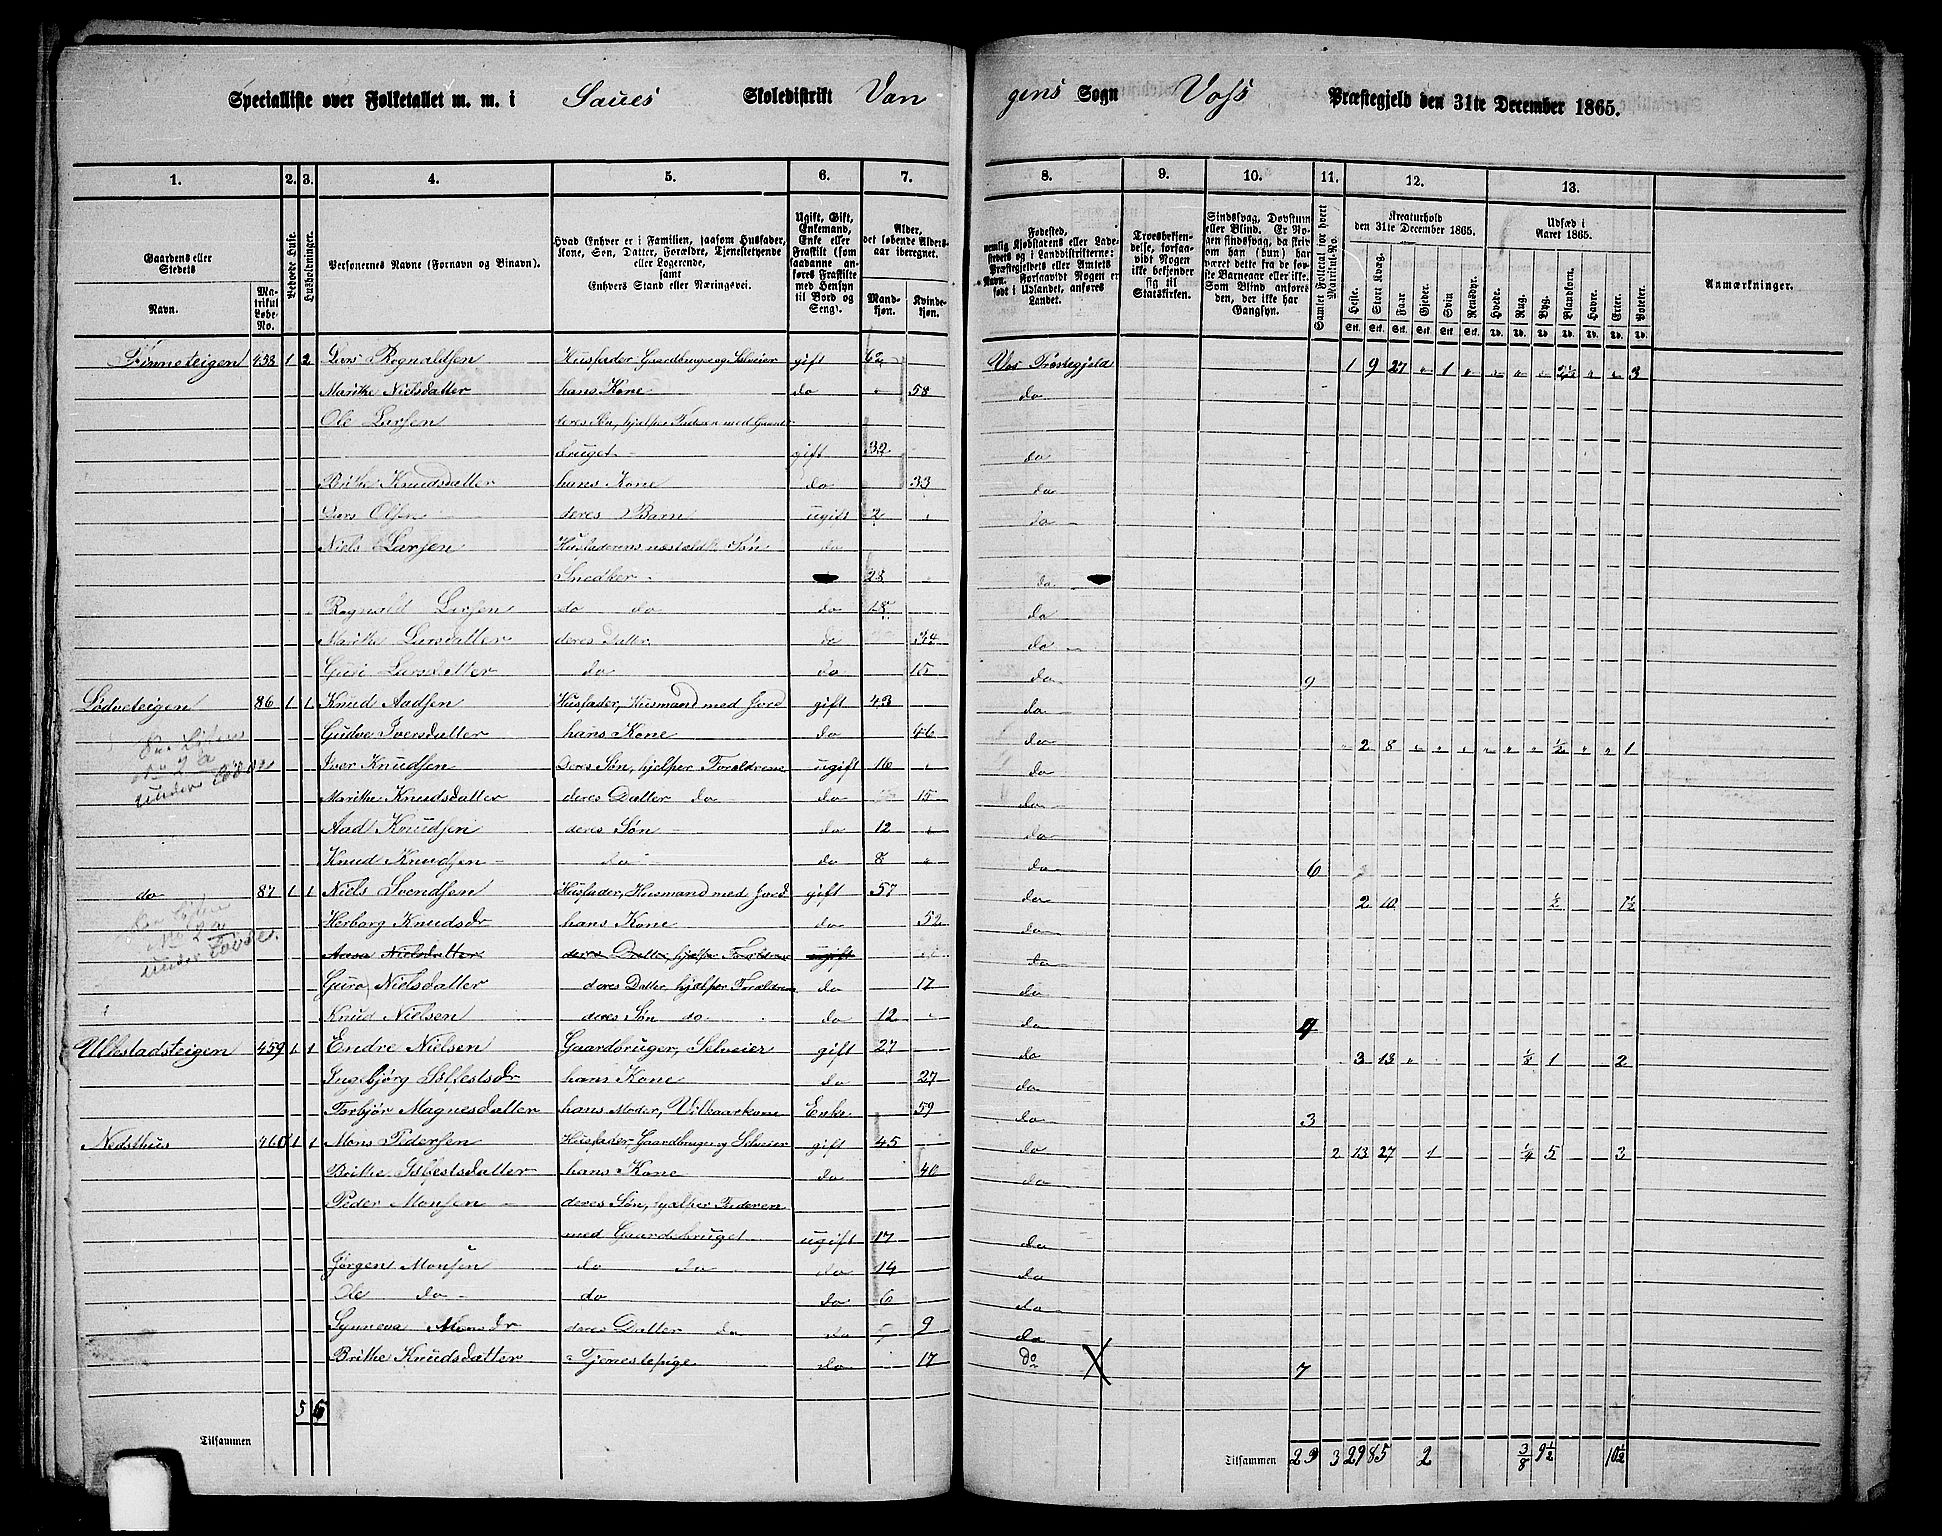 Specialliste over Folketallet m. m. i Saues Skoledistrikt Van gens Sogn Voss Præstegjeld den 31te December 1865.
1. 2. 3. 4. 5. 6. 7. 8. 9. 10. 11. 12. 13.
Gaardens eller Stedets
Navn. Matrikul Løbe-No. Beboede Huse. Husholdninger.
Personernes Navne (Fornavn og Binavn).
Hvad Enhver er i Familien, saasom Husfader, Kone, Søn, Datter, Forældre, Tjenestetyende eller Logerende, samt Enhvers Stand eller Næringsvei.
Ugift, Gift, Enkemand, Enke eller Fraskilt (som saadanne anføres Fraskilte med Hensyn til Bord og Seng).
Alder, det løbende Aldersaar iberegnet.
Mandkjøn. Kvindekjøn.
Fødested, nemlig Kjøbstadens eller Ladestedets og i Landdistrikterne: Præstegjeldets eller Amtets Navn. Forsaavidt Nogen er født i Udlandet, anføres Landet.
Troesbekjendelse, forsaavidt Nogen ikke bekjender sig til Statskirken.
Sindssvag, Døvstum eller Blind. Er Nogen sindssvag, da skrives om han (hun) har været dette fra de første Barneaar eller ikke. Som Blind anføres den, der ikke har Gangsyn.
Samlet Folketal for hvert Matrikul-No.
Kreaturhold den 31te December 1865.
Heste. Stort Kvæg. Faar. Gjeder. Svin. Rensdyr.
Udsæd i Aaret 1865.
Hvede. Rug. Byg. Blandkorn. Havre. Erter. Poteter.
Anmærkninger.
Finneteigen 458 1 2 Lars Rognaldsen Husfader Gaardbruger og Selveier gift 62 Vos Præstegjeld 1 9 27 " 1 " " " " 2½ " " 3
Marithe Nielsdatter hans Kone do " 58 do
Ole Larsen deres Søn, hjelper Faderen med Gaards
bruget gift 32 do
Brithe Knudsdatter hans Kone do 33 do
Lars Olsen deres Barn ugift 2 do
Niels Larsen Husfaderens Søn do
Snedker 28 do
Rognald Larsen do do do 18 do
Marithe Larsdatter deres Datter do 34 do
Guri Larsdatter do do 15 do 9
Lødveteigen 86 1 1 Knud Aadsen Husfader, Husmand med Jord gift 43 do
Gudve Iversdatter hans Kone do 46 do " 2 8 " " " " " " ½ " " 1
Iver Knudsen deres Søn, hjelper Forældrene ugift 16 do
Marithe Knudsdatter deres Datter do do 15 do
Aad Knudsen deres Søn do 12 do
Knud Knudsen do do 8 do 6
do 87 1 1 Niels Svendsen Husfader, Husmand med Jord gift 57 do 2 10 ½ 1½
Herborg Knudsdr hans Kone do 52 do
Aasa Nielsdatter deres Datter, hjelper Forældrene ugift do
Guro Nielsdatter deres Datter, hjelper Forældrene do 17 do
Knud Nielsen deres Søn do do 12 do 4
Ullestadsteigen 459 1 1 Endre Nielsen Gaardbruger, Selveier gift 27 do 3 13 " ⅛ 1 2
Ingebjørg Sjöfestsdr hans Kone do 27 do
Torbjør Magnesdatter hans Moder, Vilkaarkone Enke 59 do 3
Nedsthus 460 1 1 Mons Pedersen Husfader Gaardbruger og Selveier gift 45 do 2 13 27 1 ¼ 5 3
Brithe Sjöfestsdatter hans Kone do 40 do
Peder Monsen deres Søn, hjelper Faderen
med Gaardsbruget ugift 17 do
Jørgen Monsen do do do 14 do
Ole do do do 6 do
Synneva Monsdr deres Datter do do 9 do
Brithe Knudsdatter Tjenestepige do 17 do X 7
5 6
Tilsammen
Tilsammen 29 3 29 85 2 3/8 9½ 10½